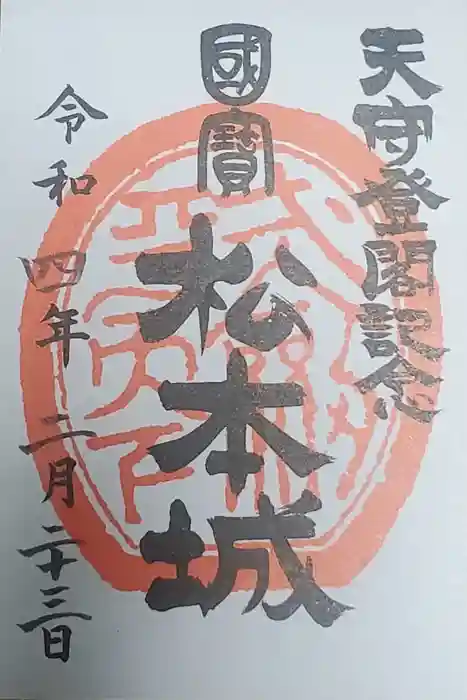 天守登閣記念
國寶
松本城
令和四年二月二十三日